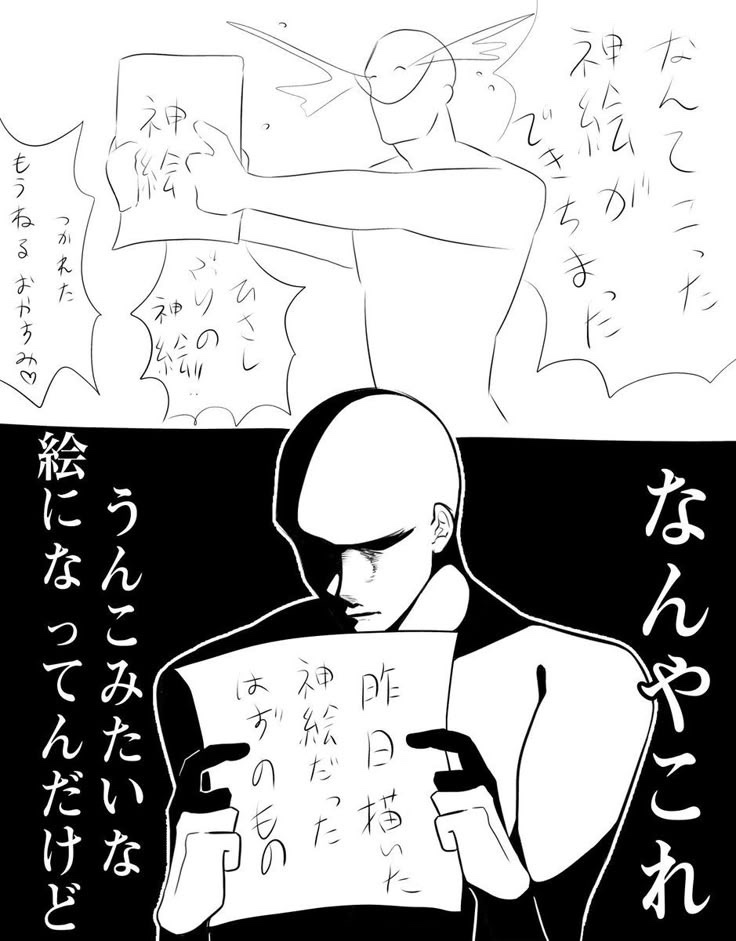 なんてこった
神絵が
できちまった
神
絵
ひさし
ぶりの
神絵!!
つかれた
もうねる おやすみ♡
なんやこれ
昨日描いた
神絵だった
はずのもの
うんこみたいな
絵になってんだけど